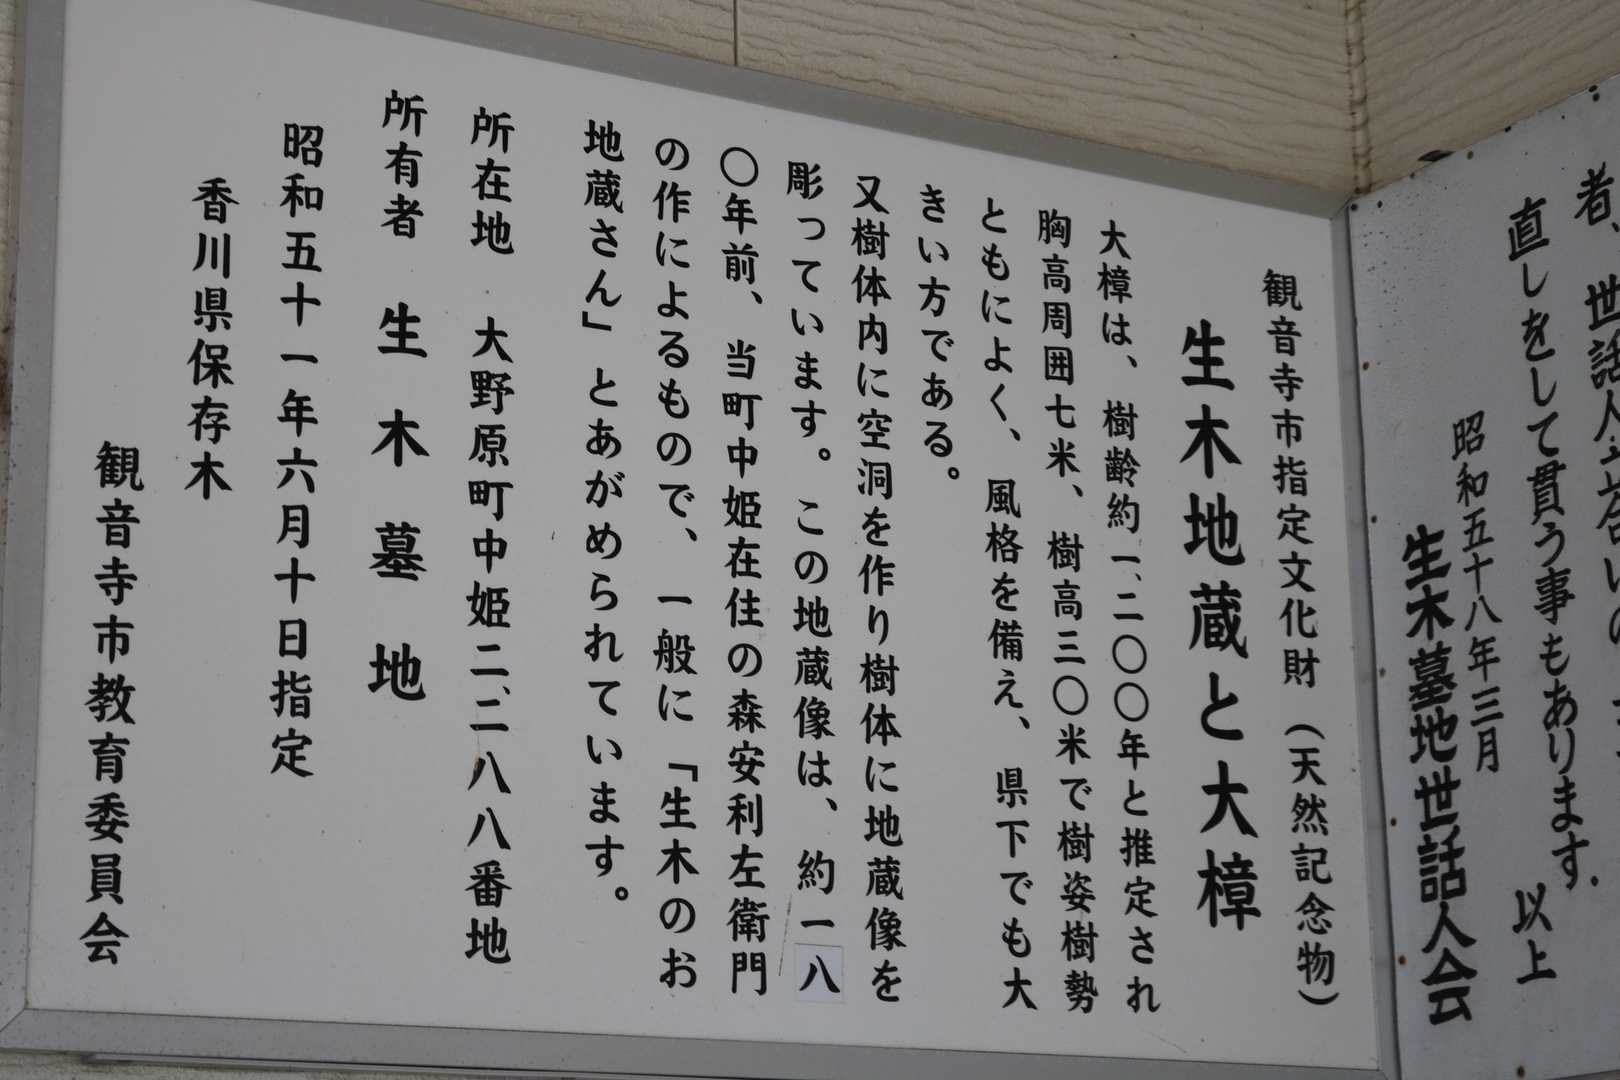 者、世話人立
直しをして貰う事もあります.
以上
昭和五十八年三月
生木墓地世話人会
観音寺市指定文化財（天然記念物）
生木地蔵と大樟
大樟は、樹齢約一、二〇〇年と推定され
胸高周囲七米、樹高三〇米で樹姿樹勢
ともによく、風格を備え、県下でも大
きい方である。
又樹体内に空洞を作り樹体に地蔵像を
彫っています。この地蔵像は、約一八
〇年前、当町中姫在住の森安利左衛門
の作によるもので、一般に「生木のお
地蔵さん」とあがめられています。
所在地　大野原町中姫二、二八八番地
所有者　生木墓地
昭和五十一年六月十日指定
香川県保存木
観音寺市教育委員会